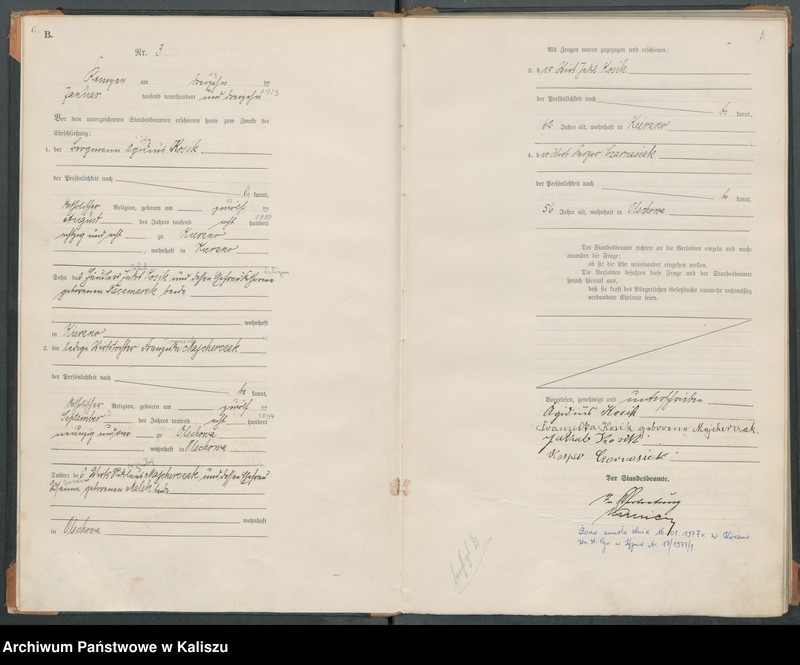 B.
Nr. 3
Kempen am dreizehn ten
Januar tausend neunhundert und dreizehn 1913
Vor dem unterzeichneten Standesbeamten erschienen heute zum Zwecke der
Eheschließung:
1. der Bergmann Ägidius Kosik
der Persönlichkeit nach
be kannt,
katholischer Religion, geboren am zwölf ten
August des Jahres tausend acht hundert
achtzig und acht zu Kurzno
, wohnhaft in Kurzno
Sohn des Häusler Jakob Kosik und dessen Ehefrau Katharina
geborenen Kaczmarek beide
wohnhaft
in Kurzno
2. die ledige Wirtstochter Franziska Majcherczak
der Persönlichkeit nach
be kannt,
katholischer Religion, geboren am zwölf ten
September des Jahres tausend acht hundert 1894
neunzig und vier zu Olschowa
wohnhaft in Olschowa
Tochter des Wirts Nikolaus Majcherczak und dessen Ehefrau
geborenen Malek beide
wohnhaft
in Olschowa
Als Zeugen waren zugezogen und erschienen:
3. der Wirt Jakob Kosik
der Persönlichkeit nach
be kannt,
62 Jahre alt, wohnhaft in Kurzno
4. der Wirt Czarnasiak
der Persönlichkeit nach
be kannt,
56 Jahre alt, wohnhaft in Olschowa
Der Standesbeamte richtete an die Verlobten einzeln und nach-
einander die Frage:
ob sie die Ehe miteinander eingehen wollen.
Die Verlobten bejahten diese Frage und der Standesbeamte
sprach hierauf aus,
daß sie kraft des Bürgerlichen Gesetzbuchs nunmehr rechtmäßig
verbundene Eheleute seien.
Vorgelesen, genehmigt und unterschrieben
Ägidius Kosik
Franziska Kosik geborene Majcherczak
Jakub Kosik
Kasper Czarnasiak
Der Standesbeamte.
In Vertretung
Żona zmarła dnia 16.01.1977 r. w
Archiwum Państwowe w Kaliszu